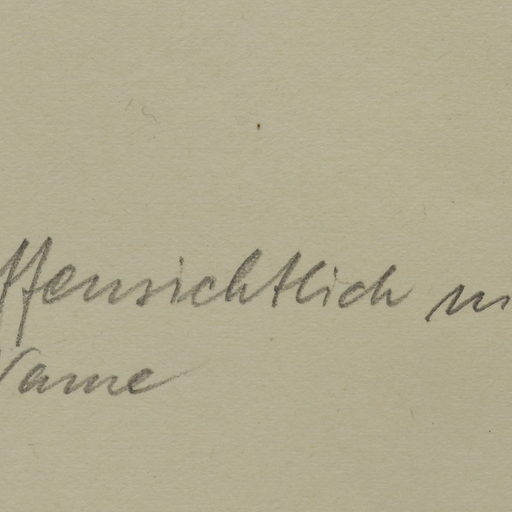 ffensichtlich
Name